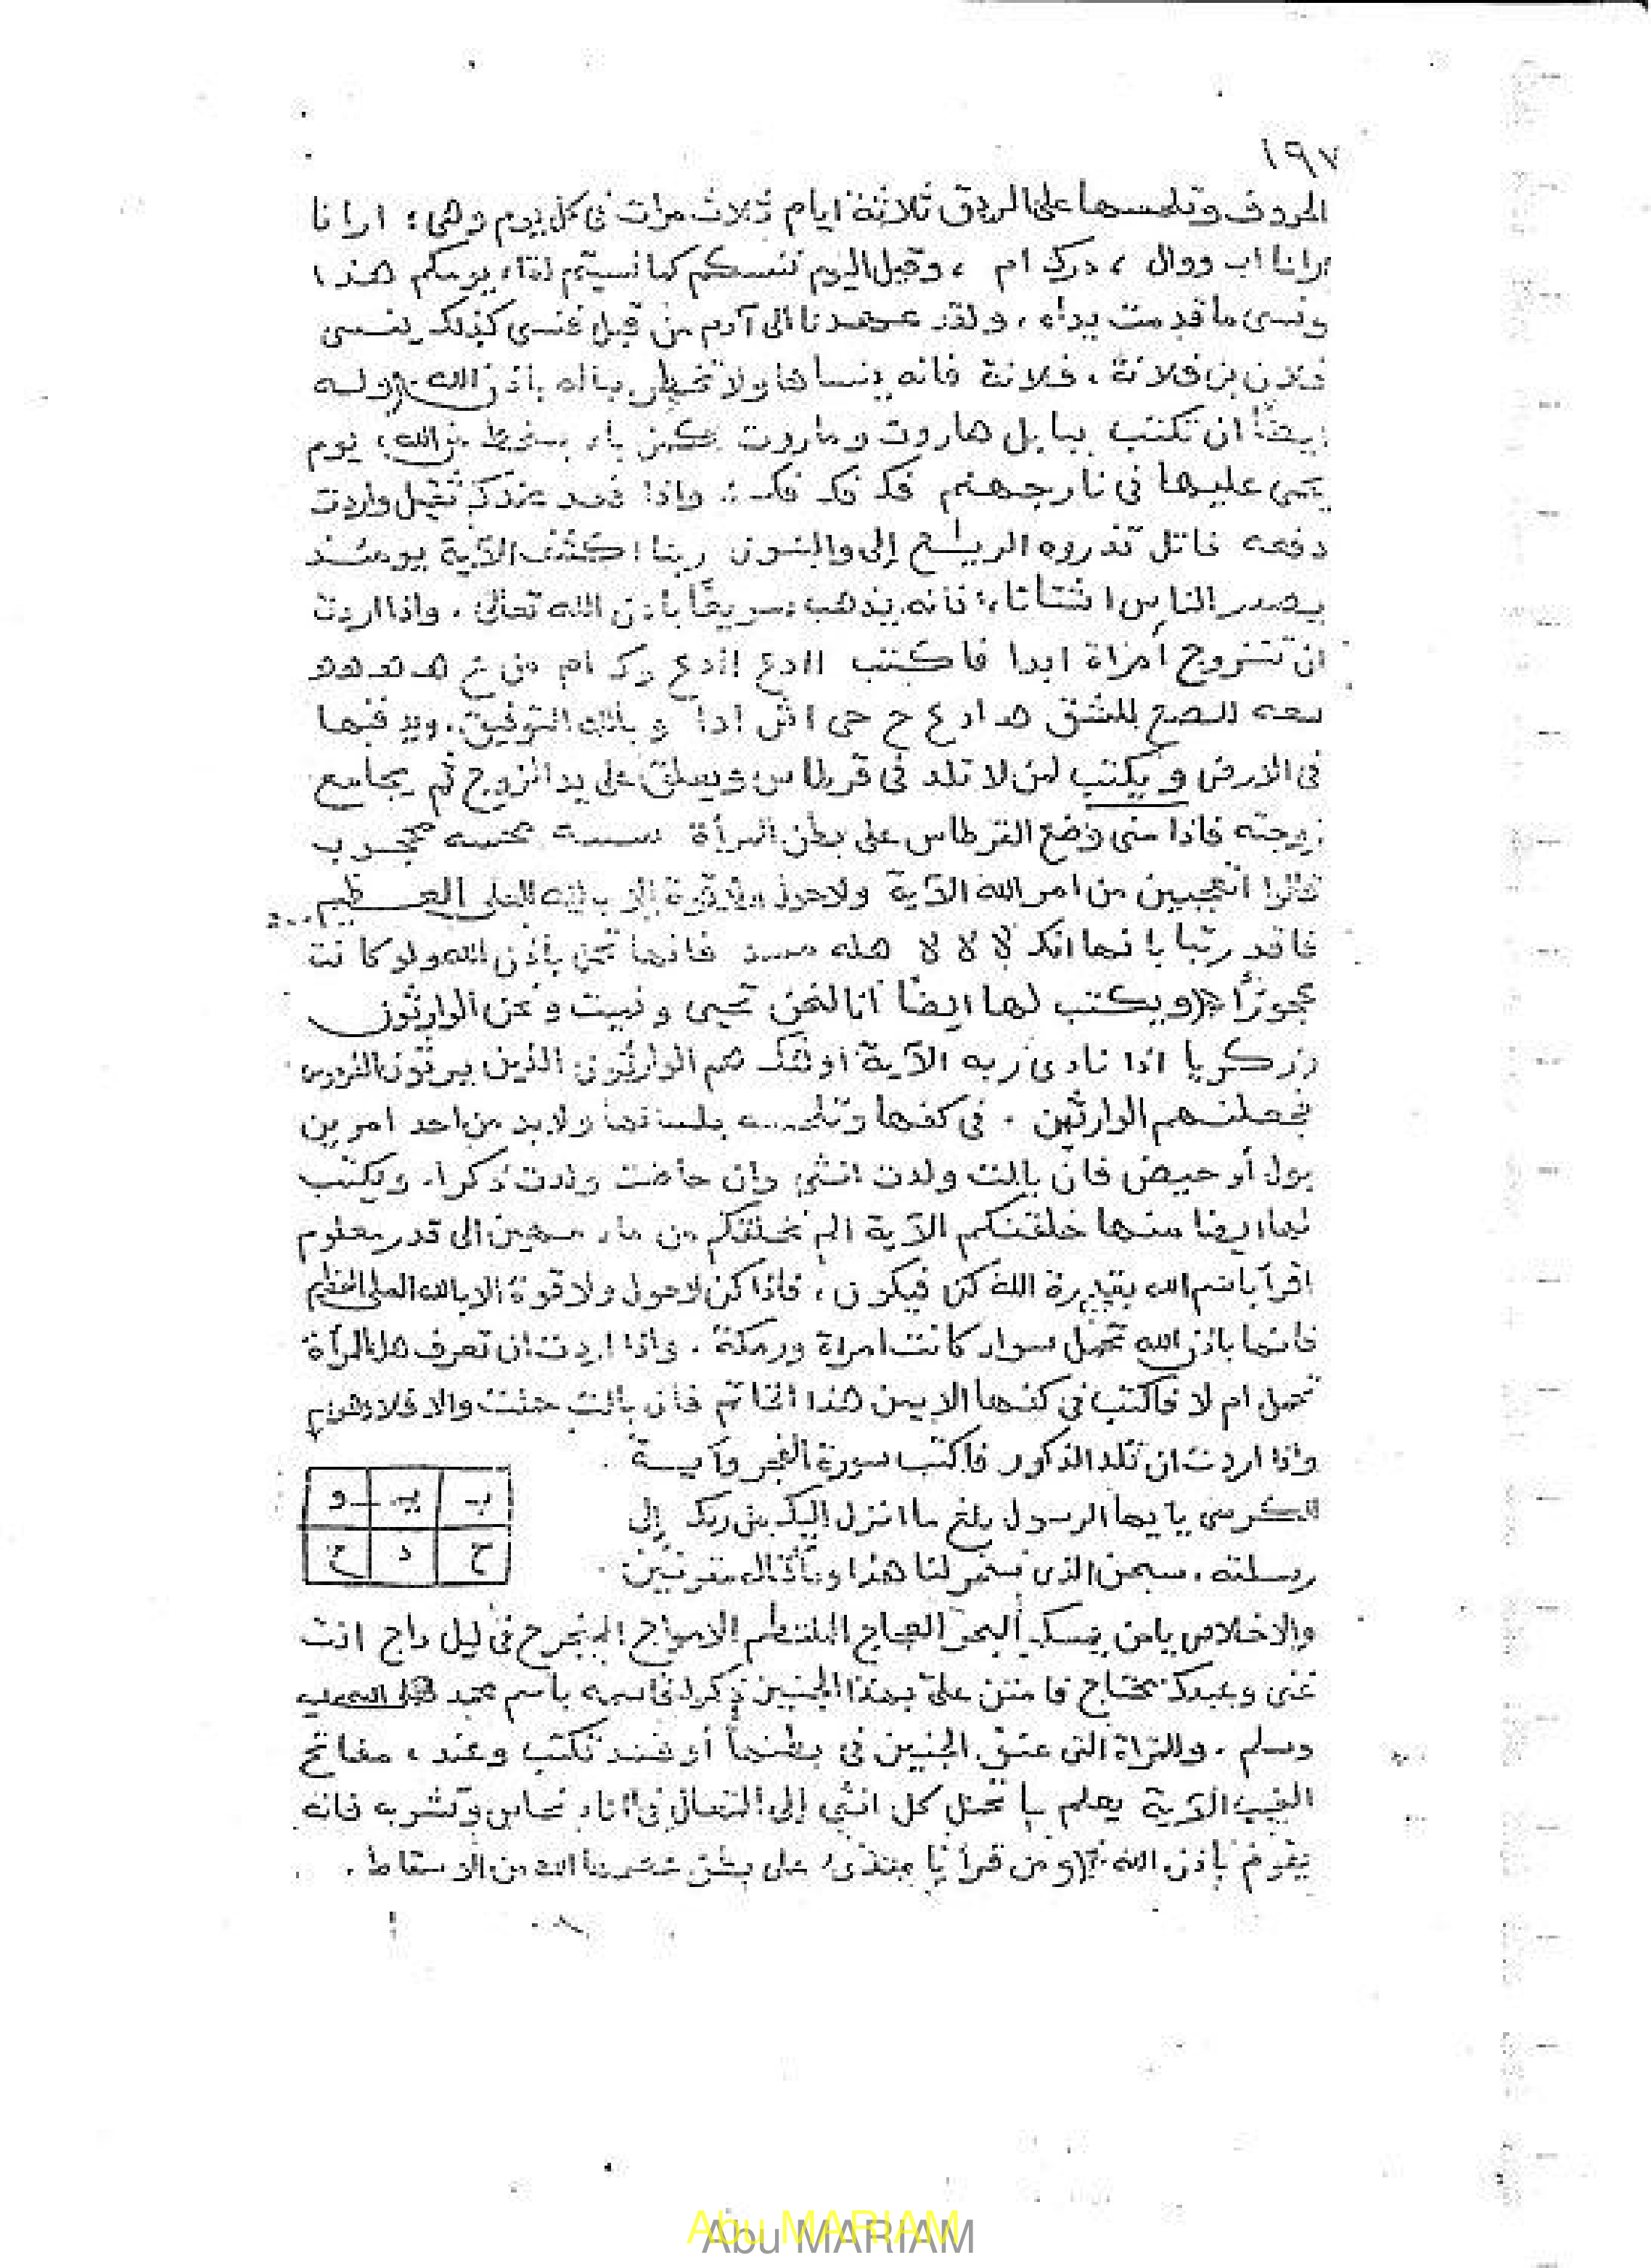 ١٩٧
الحروف وتلحسها على الريق ثلاثة ايام ثلاث مرات فى كل يوم وهى : ارانا
برانا اب ووال ، درك ام ، وقيل اليوم ننسكم كما نسيتم لقاء يومكم هذا
ونسى ما قدمت يداه ، ولقد عهدنا الى آدم من قبل فنسى كذلك ينسى
فلان بن فلانة ، فلانة فانه ينساها ولا تخطر بباله باذن الله . وله
ايضًا ان تكتب ببابل هاروت وماروت باء بسخط من الله ، يوم
يحمى عليها فى نار جهنم فك فك فك : واذا قعد عندك ثقيل واردت
دفعه فاتل تذروه الرياح إلى والبنون ربنا اكشف الآية يومئذ
يصدر الناس اشتاتا ، فانه يذهب سريعًا باذن الله تعالى . واذا اردت
ان تتزوج امراة ابدا فاكتب اادع اادع وك ام من ع ه ه ه ه
هـ ا د ع ح حى اش ادا وبالله التوفيق . ويدفنها
فى الارض ويكتب لمن لا تلد فى قرطاس ويعلق على يد الزوج ثم يجامع
زوجته فاذا منى وضع القرطاس على بطن المرأة
قالوا اتعجبين من امر الله الآية ولا حول ولا قوة إلا بالله العلى العظيم
لا لا لا فانها تحمل باذن الله ولو كانت
عجوزًا ويكتب لها ايضًا انا لنحن نحيى ونميت ونحن الوارثون
وزكريا اذا نادى ربه الآية اولئك هم الوارثون الذين يرثون الفردوس
نجعلهم الوارثين . فى كفها وتلحسه بلسانها ولا بد من احد امرين
بول أو حيض فان بالت ولدت انثى وان حاضت ولدت ذكرا . ويكتب
لها ايضا منها خلقنكم الآية الم نخلقكم من ماء مهين الى قدر معلوم
اقرأ باسم الله بقدرة الله كن فيكون ، فاذا كن لا حول ولا قوة الا بالله العلى العظيم
فانها باذن الله تحمل سواء كانت امراة ورمكة . واذا اردت ان تعرف هل المرأة
تحمل ام لا فاكتب فى كفها الايمن هذا الخاتم فان بالت حملت والا فلا
واذا اردت ان تلد الذكور فاكتب سورة الفجر وآية
الكرسى يا يها الرسول بلغ ما انزل إليك من ربك إلى
رسلته . سبحن الذى سخر لنا هذا وما كنا له مقرنين
ب يـ و
ح د ح
والاخلاص يا من يمسك البحر العجاج الملتطم الامواج فى ليل داج انت
غنى وعبدك محتاج فامنن على بهذا الجنين ذكرا فاسمه باسم محمد صلى الله عليه
وسلم . والمراة التى الجنين فى بطنها أو فسد تكتب وعنده مفاتح
الغيب الآية يعلم ما تحمل كل انثى إلى المتعال فى اناء نحاس وتشربه فانه
يقوم باذن الله ومن قرأ على بطن الله من الاسقاط .
Abu MARIAM
Abu MARIAM